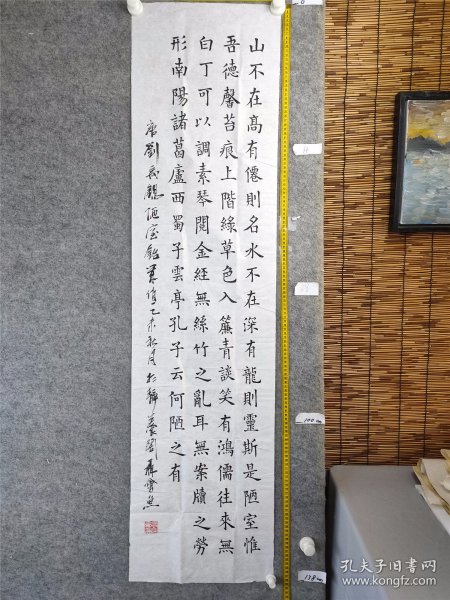 山不在高有僊則名水不在深有龍則靈斯是陋室惟
吾德馨苔痕上階綠草色入簾青談笑有鴻儒往來無
白丁可以調素琴閱金經無絲竹之亂耳無案牘之勞
形南陽諸葛廬西蜀子雲亭孔子云何陋之有
唐劉禹錫陋室銘乙未秋月於
0
100cm
138cm
孔夫子旧书网
www.kongfz.com